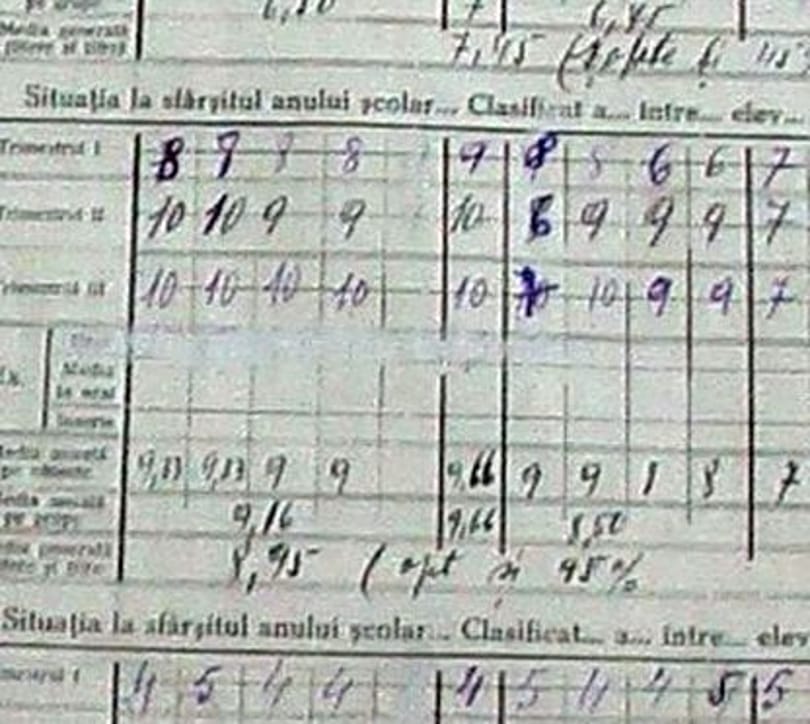 6,80 7 6,45
Media generală
7,45 (Șapte și 45%
Situația la sfârșitul anului școlar... Clasificat a... intre... elev...
Trimestrul I 8 9 8 8 9 8 8 6 6 7
Trimestrul II 10 10 9 9 10 8 9 9 9 7
Trimestrul III 10 10 10 10 10 10 10 9 9 7
Media
la oral
Inscris
Media anuală 9,33 9,33 9 9 9,66 9 9 8 8 7
pe obiecte
Media anuală 9,16 9,66 8,50
pe grupe
generală 8,95 (opt și 95%
Situația la sfârșitul anului școlar... Clasificat... a... intre... elev
4 5 4 4 4 5 4 4 5 5